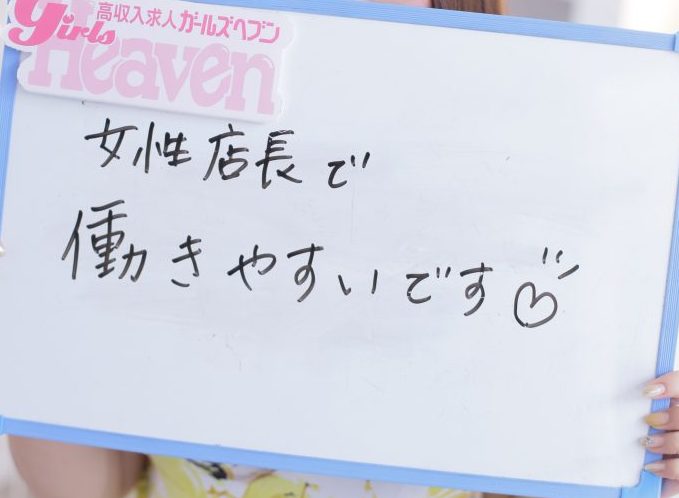 高収入求人ガールズヘブン
girls
Heaven
女性店長で
働きやすいです♡